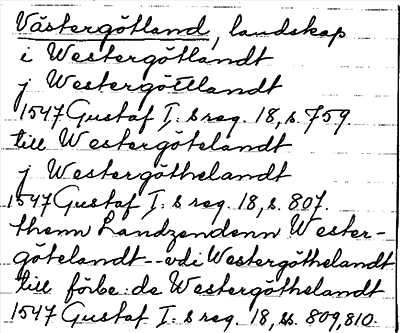 Västergötland, landskap
i Westergötlandt
j Westergöttlandt
1547 Gustaf I:s reg. 18, s. 759.
till Westergötelandt
j Westergöthelandt
1547 Gustaf I:s reg. 18, s. 807.
thenn Landzendenn Wester-
götelandt -- vdi Westergöthelandt
till förbe:de Westergöthelandt
1547 Gustaf I:s reg. 18, ss. 809, 810.